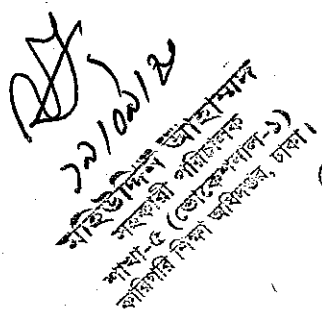 ১২/০১/২০
মহিউদ্দিন আহাম্মদ
সহকারী পরিচালক
শাখা-৫ (ভোকেশনাল-১)
কারিগরি শিক্ষা অধিদপ্তর, ঢাকা।